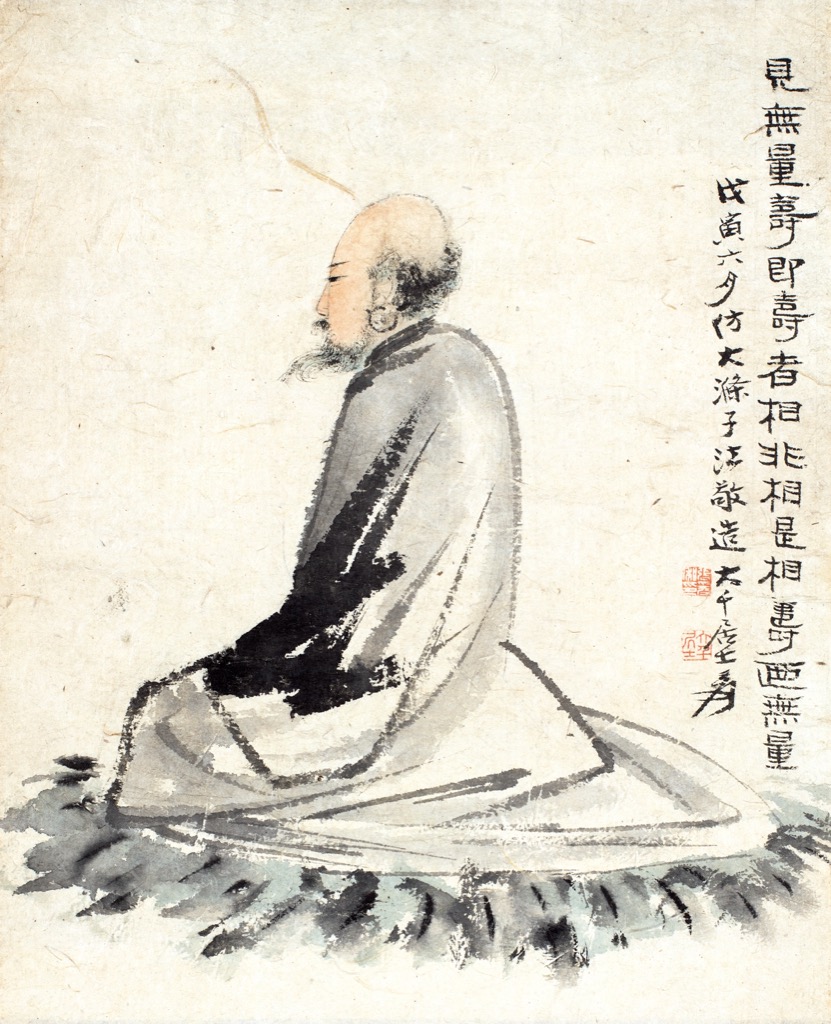 見無量壽即壽者相非相是相壽乃無量
戊寅六月仿大滌子法敬造 大千居士爰